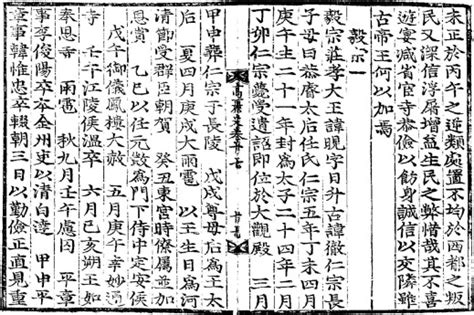 未正於丙午之近類處置不均於西都之叛
民又深信浮屠增益生民之弊惜哉其不喜
遊宴減省宦寺恭儉以飭身誠信以交隣雖
古帝王何以加焉
毅宗一
毅宗莊孝大王諱晛字日升古諱徹仁宗長
子母曰恭睿太后任氏仁宗五年丁未四月
庚午生二十一年封爲太子二十四年二月
丁卯仁宗薨受遺詔即位於大觀殿 三月
高麗史卷十七
甲申葬仁宗于長陵 戊戌尊母后爲王太
后 夏四月庚戌大雨雹 以王生日爲河
清節受群臣朝賀 癸丑東宮時僚屬並加
恩賞 乙巳以任元敱爲門下侍中定安侯
戊午御儀鳳樓大赦 庚申幸妙通
寺 壬午江陵侯溫卒 六月己亥朔王如
奉恩寺 雨雹 秋九月壬午慮囚 平章
事李俊陽卒卒金州吏以清白達 甲申平
章事韓惟忠卒輟朝三日以勤儉正直見重